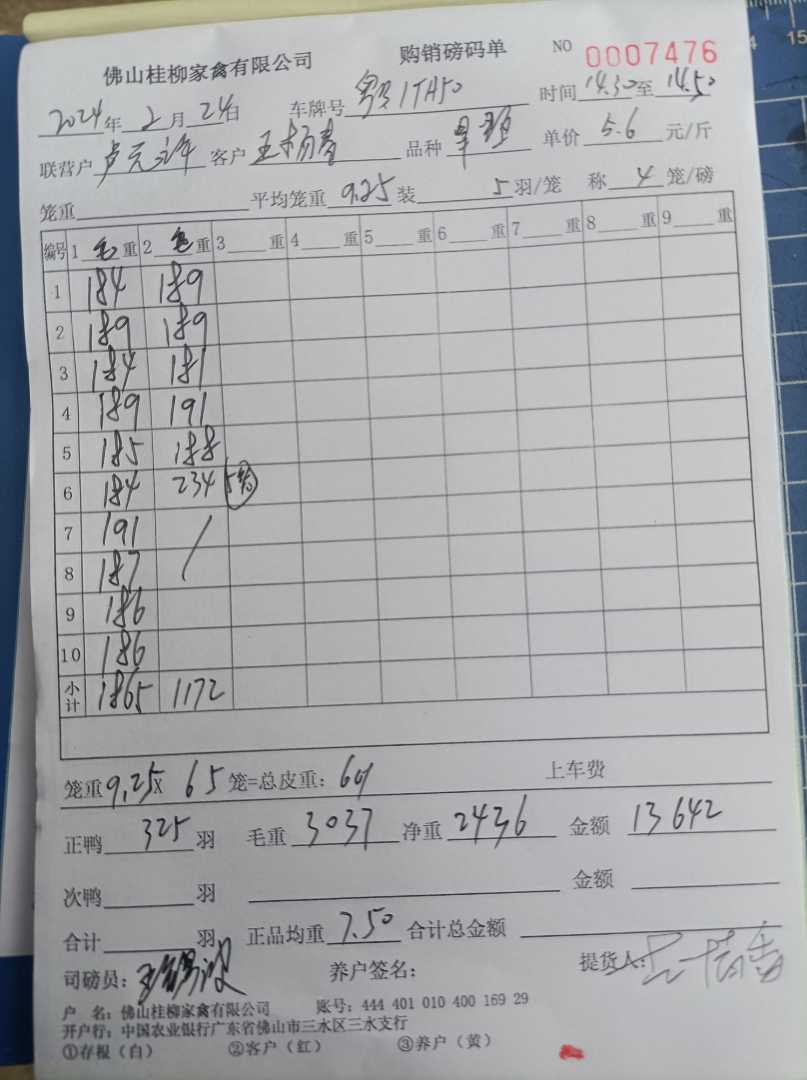 佛山桂柳家禽有限公司 购销磅码单 NO 0007476
2024年 2 月 24日 车牌号 粤 1TH50 时间 14.30 至 14.50
联营户 卢元许 客户 王杨春 品种 单价 5.6 元/斤
笼重 平均笼重 9.25 装 5 羽/笼 称 4 笼/磅
编号 1 毛 重 2 毛 重 3 重 4 重 5 重 6 重 7 重 8 重 9 重
1 184 189
2 189 189
3 184 181
4 189 191
5 185 188
6 184 234 5笼
7 191 /
8 187
9 186
10 186
小计 1865 1172
笼重 9.25 X 65 笼=总皮重: 601 上车费
正鸭 325 羽 毛重 3037 净重 2436 金额 13642
次鸭 羽 金额
合计 羽 正品均重 7.50 合计总金额
司磅员: 养户签名: 提货人:
户 名: 佛山桂柳家禽有限公司 账号: 444 401 010 400 169 29
开户行: 中国农业银行广东省佛山市三水区三水支行
①存根（白） ②客户（红） ③养户（黄）